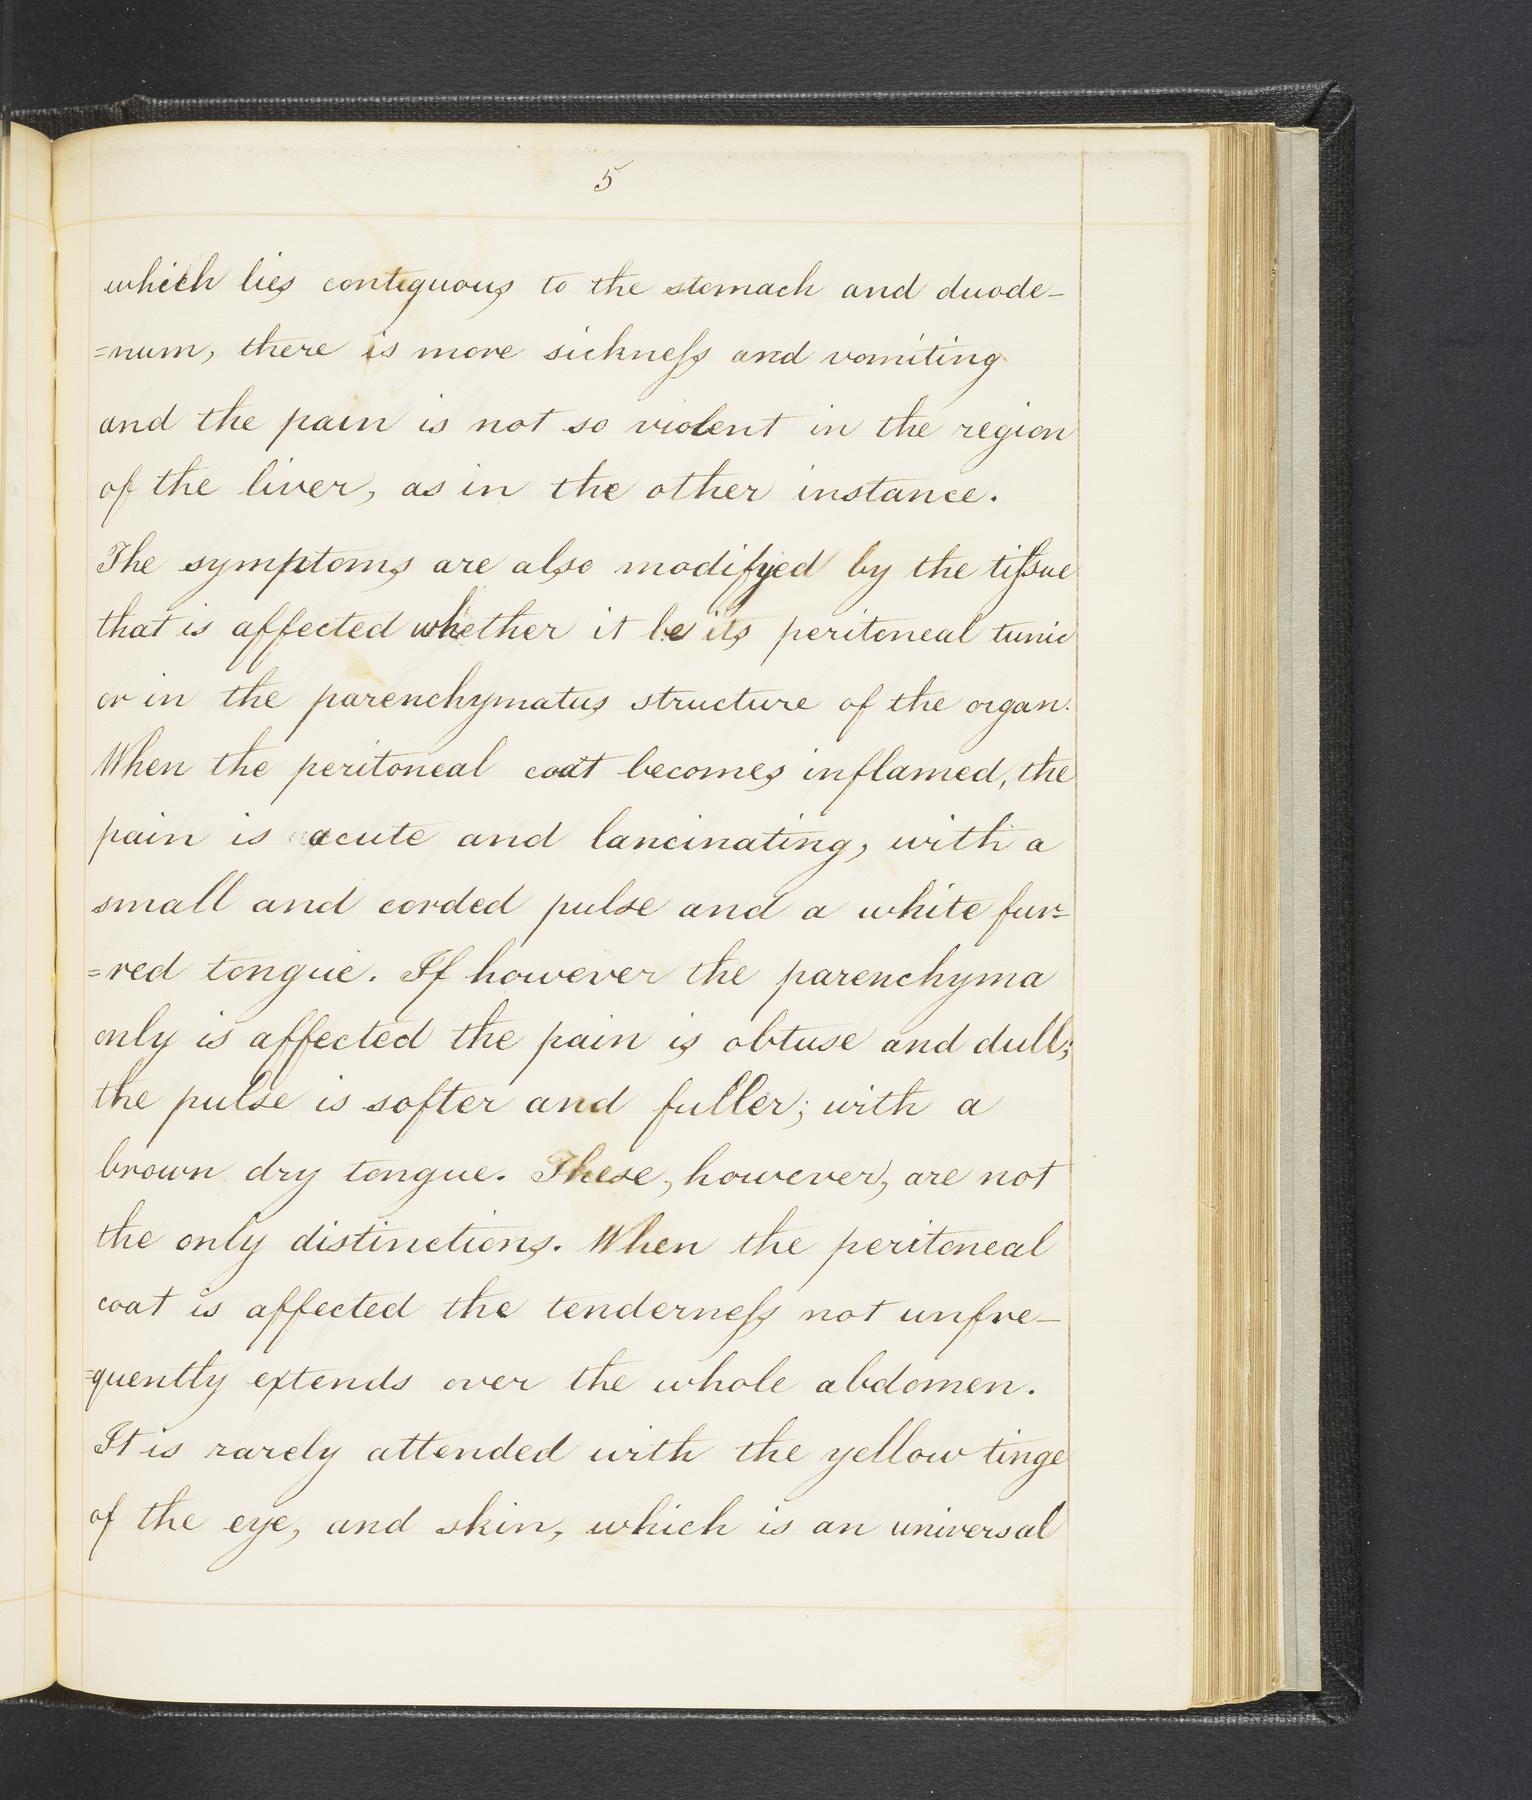 5
which lies contiguous to the stomach and duode-
=num, there is more sickneſs and vomiting
and the pain is not so violent in the region
of the liver, as in the other instance.
The symptoms are also modifyed by the tiſsue
that is affected whether it be its peritoneal tunic
or in the parenchymatus structure of the organ.
When the peritoneal coat becomes inflamed, the
pain is acute and lancinating, with a
small and corded pulse and a white fur=
=red tongue. If however the parenchyma
only is affected the pain is obtuse and dull;
the pulse is softer and fuller; with a
brown dry tongue. These, however, are not
the only distinctions. When the peritoneal
coat is affected the tenderneſs not unfre-
=quently extends over the whole abdomen.
It is rarely attended with the yellow tinge
of the eye, and skin, which is an universal